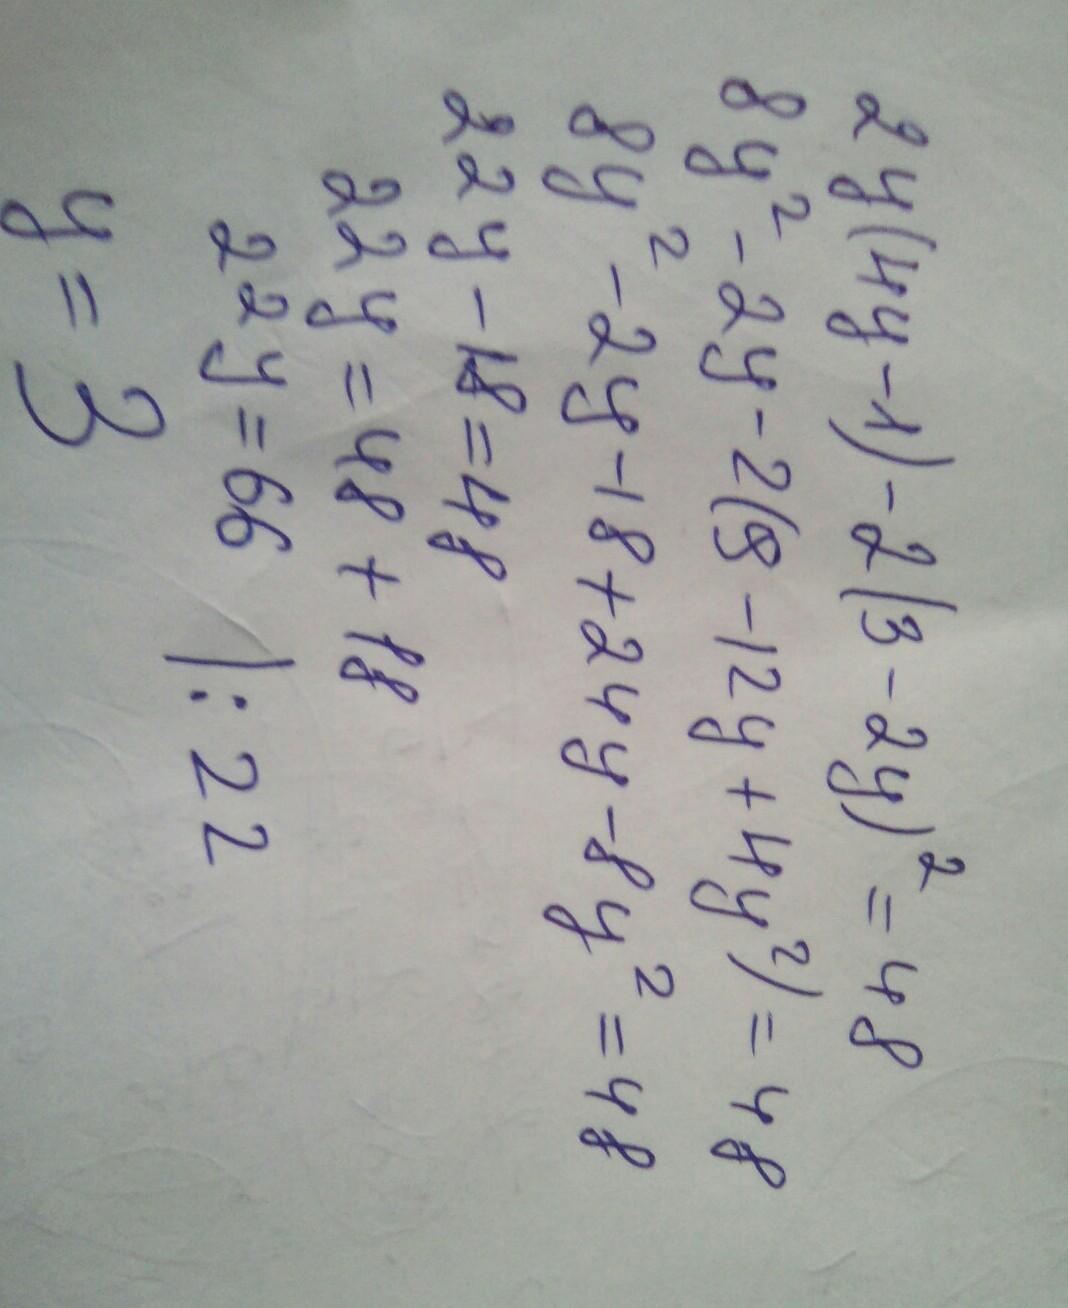 2y(4y-1)-2(3-2y)²=48
8y²-2y-2(9-12y+4y²)=48
8y²-2y-18+24y-8y²=48
22y-18=48
22y=48+18
22y=66 |:22
y=3